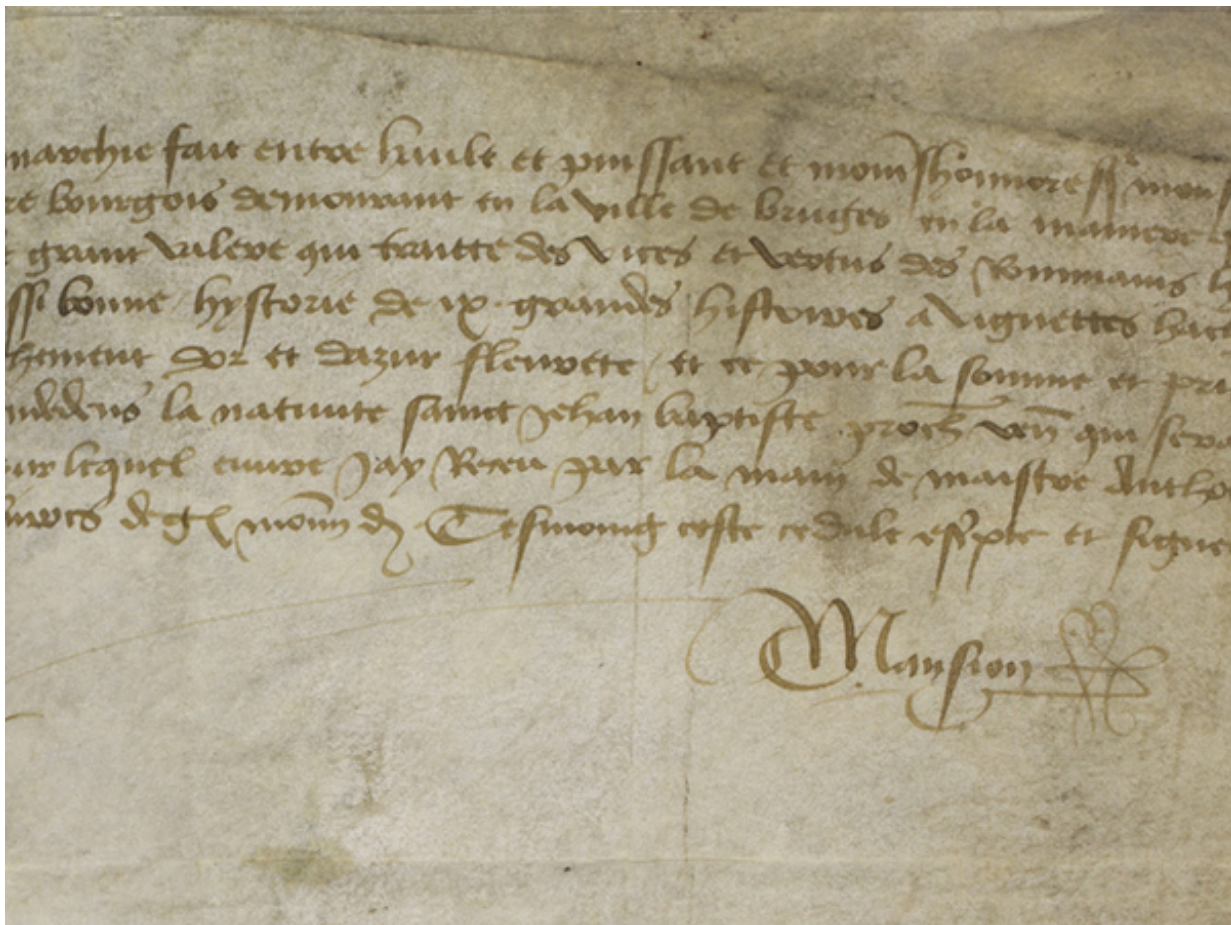 marchie fait entre hault et puissant et mom̅ shonnore sr mon
re bourgois demourant en la ville de bruges en la maniere
grant valere qui traitte des vices et vertus des Rommains
ssi bonne hystorie de ix grandes histoires a vignettes
hement dor et dazur fleurete / et ce pour la somme et
la natiuite saint Jehan baptiste proch̅ ven̅ qui
lequel euure Jay Receu par la main de maistre
de monn̅ Tesmoing ceste cedule escpte et signe
Mansion